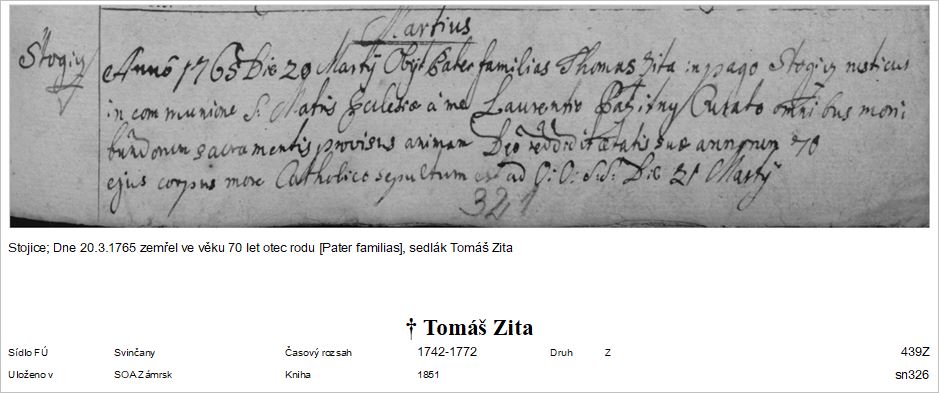 Martius
Stogicz Anno 1765 Die 20 Martÿ Obÿt Pater familias Thomas Zita in pago Stogicz rusticus
in communione S. Matris Ecclesiæ a me Laurentio Pažitny Curato omnibus mori
bundorum sacramentis provisus animam Deo reddidit ætatis suæ annorum 70
ejus corpus more Catholico sepultum est ad O: O: S.S. Die 21 Martÿ
321
Stojice; Dne 20.3.1765 zemřel ve věku 70 let otec rodu [Pater familias], sedlák Tomáš Zita
† Tomáš Zita
Sídlo FÚ Svinčany Časový rozsah 1742-1772 Druh Z 439Z
Uloženo v SOA Zámrsk Kniha 1851 sn326